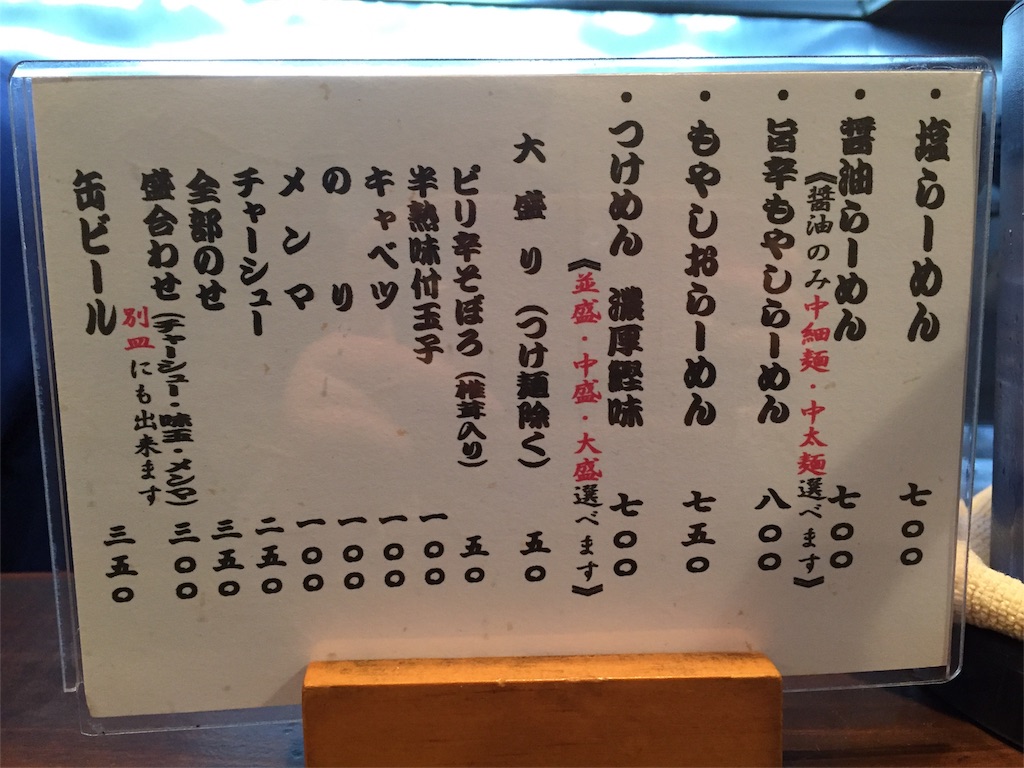 ・塩らーめん 七〇〇
・醤油らーめん 七〇〇
《醤油のみ中細麺・中太麺選べます》
・旨辛もやしらーめん 八〇〇
・もやしおらーめん 七五〇
・つけめん 濃厚鰹味 七〇〇
《並盛・中盛・大盛選べます》
大盛り（つけ麺除く） 五〇
ピリ辛そぼろ（椎茸入り） 五〇
半熟味付玉子 一〇〇
キャベツ 一〇〇
のり 一〇〇
メンマ 一〇〇
チャーシュー 二五〇
全部のせ 三五〇
盛合わせ（チャーシュー・味玉・メンマ） 三〇〇
別皿にも出来ます
缶ビール 三五〇